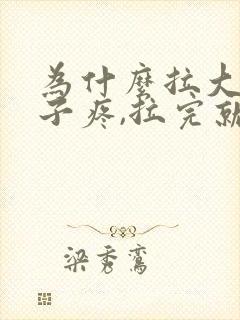 为什麽拉大
子疼,拉完就
梁秀鸾